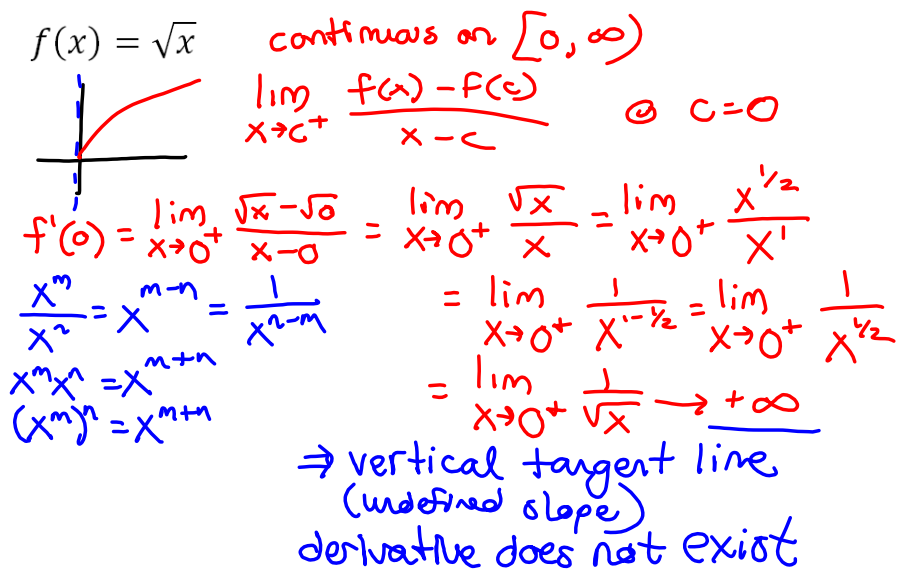 f(x) = √x
continuous on [0, ∞)
lim x→c⁺ (f(x) − f(c))/(x − c) @ c=0
f'(0) = lim x→0⁺ (√x − √0)/(x − 0) = lim x→0⁺ √x/x = lim x→0⁺ x^(1/2)/x^1
= lim x→0⁺ 1/x^(1−1/2) = lim x→0⁺ 1/x^(1/2)
= lim x→0⁺ 1/√x → +∞
x^m/x^n = x^(m−n) = 1/x^(n−m)
x^m x^n = x^(m+n)
(x^m)^n = x^(m+n)
⇒ vertical tangent line
(undefined slope)
derivative does not exist